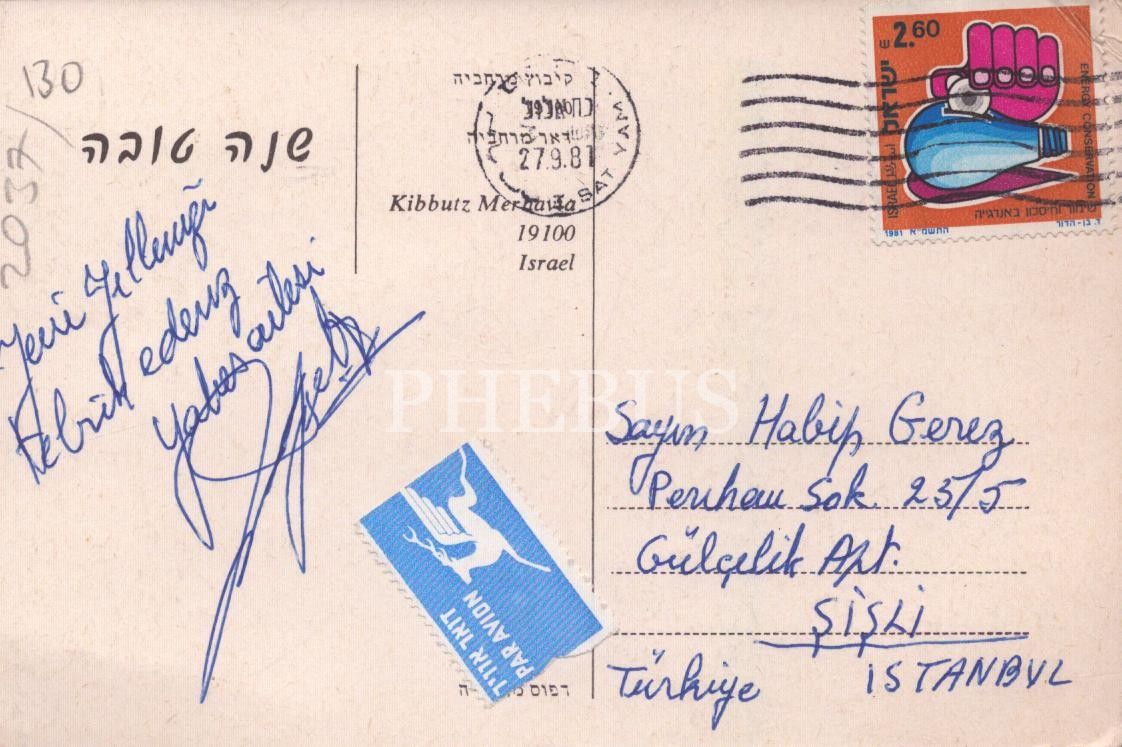 130
2037
שנה טובה
Yeni Yıllınızı
tebrik ederiz
ailesi
קיבוץ מרחביה
דואר מרחביה
27.9.81
SAT YAM
Kibbutz Merhavia
19100
Israel
2.60
ישראל
ISRAEL
ENERGY CONSERVATION
באנרגיה
1981
התשמ"א
ד. בן-הדור
PHEBUS
Sayın Habip Gerez
Perihan Sok. 25/5
Gülçelik Apt.
ŞİŞLİ
İSTANBUL
Türkiye
דואר אויר
PAR AVION
דפוס